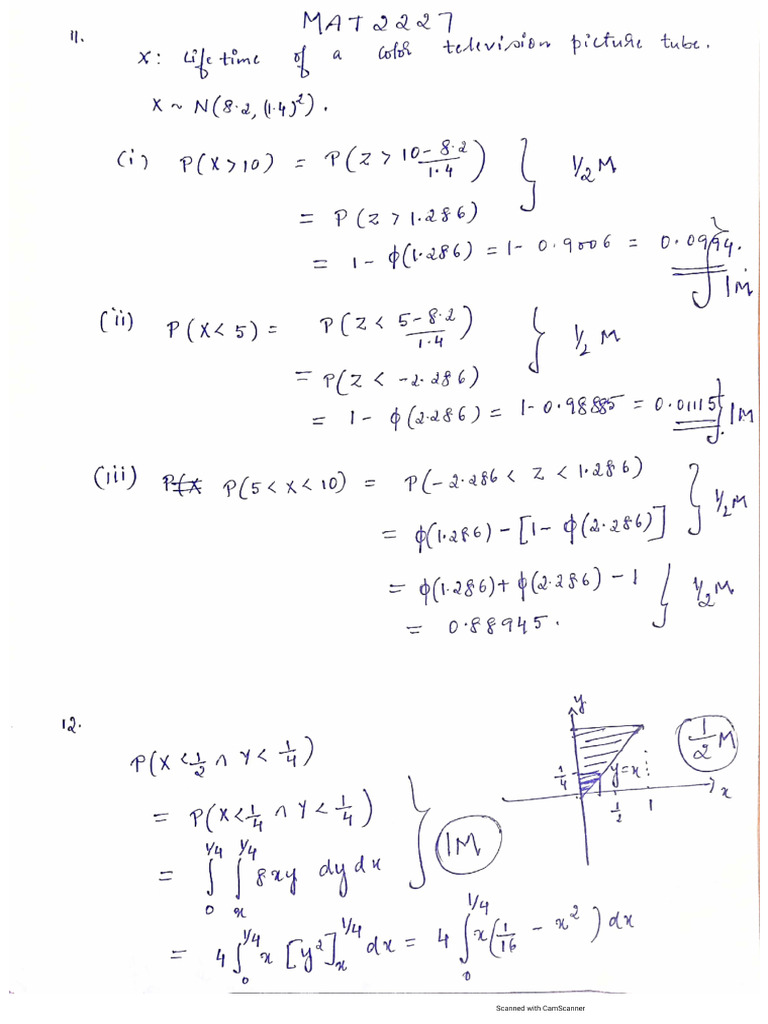 MAT2227
11. X: Life time of a color television picture tube.
X ~ N(8.2, (1.4)²).
(i) P(X>10) = P(Z > 10-8.2/1.4) } 1/2 M
= P(Z > 1.286)
= 1 - ϕ(1.286) = 1 - 0.9006 = 0.0994. } 1M
(ii) P(X<5) = P(Z < 5-8.2/1.4) } 1/2 M
= P(Z < -2.286)
= 1 - ϕ(2.286) = 1 - 0.98885 = 0.01115 } 1M
(iii) P(5<X<10) = P(-2.286 < Z < 1.286) } 1/2 M
= ϕ(1.286) - [1 - ϕ(2.286)]
= ϕ(1.286) + ϕ(2.286) - 1 } 1/2 M
= 0.88945.
12. y
1/2 M
P(X < 1/2 ∩ Y < 1/4)
1/4 y=x
x
1/2 1
= P(X < 1/4 ∩ Y < 1/4) } 1M
= ∫₀^{1/4} ∫ₓ^{1/4} 8xy dy dx
= 4 ∫₀^{1/4} x [y²]ₓ^{1/4} dx = 4 ∫₀^{1/4} x (1/16 - x²) dx
Scanned with CamScanner